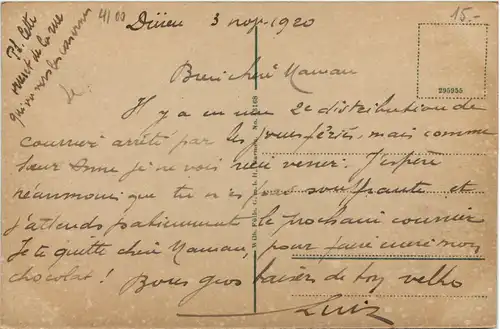 P.S. Cette
vient de la rue
qui va vers les casernes
4/00
Düren 3 nov. 1920
15.-
295955
Bien chère Maman
Il y a eu une 2e distribution de
courrier arrêté par les jours fériés, mais comme
Sœur Anne je ne vois rien venir. J'espère
néanmoins que tu n'es pas souffrante et
j'attends patiemment le prochain courrier
Je te quitte chère Maman, pour faire cuire mon
chocolat! Bons gros baisers de ton velho
Luiz